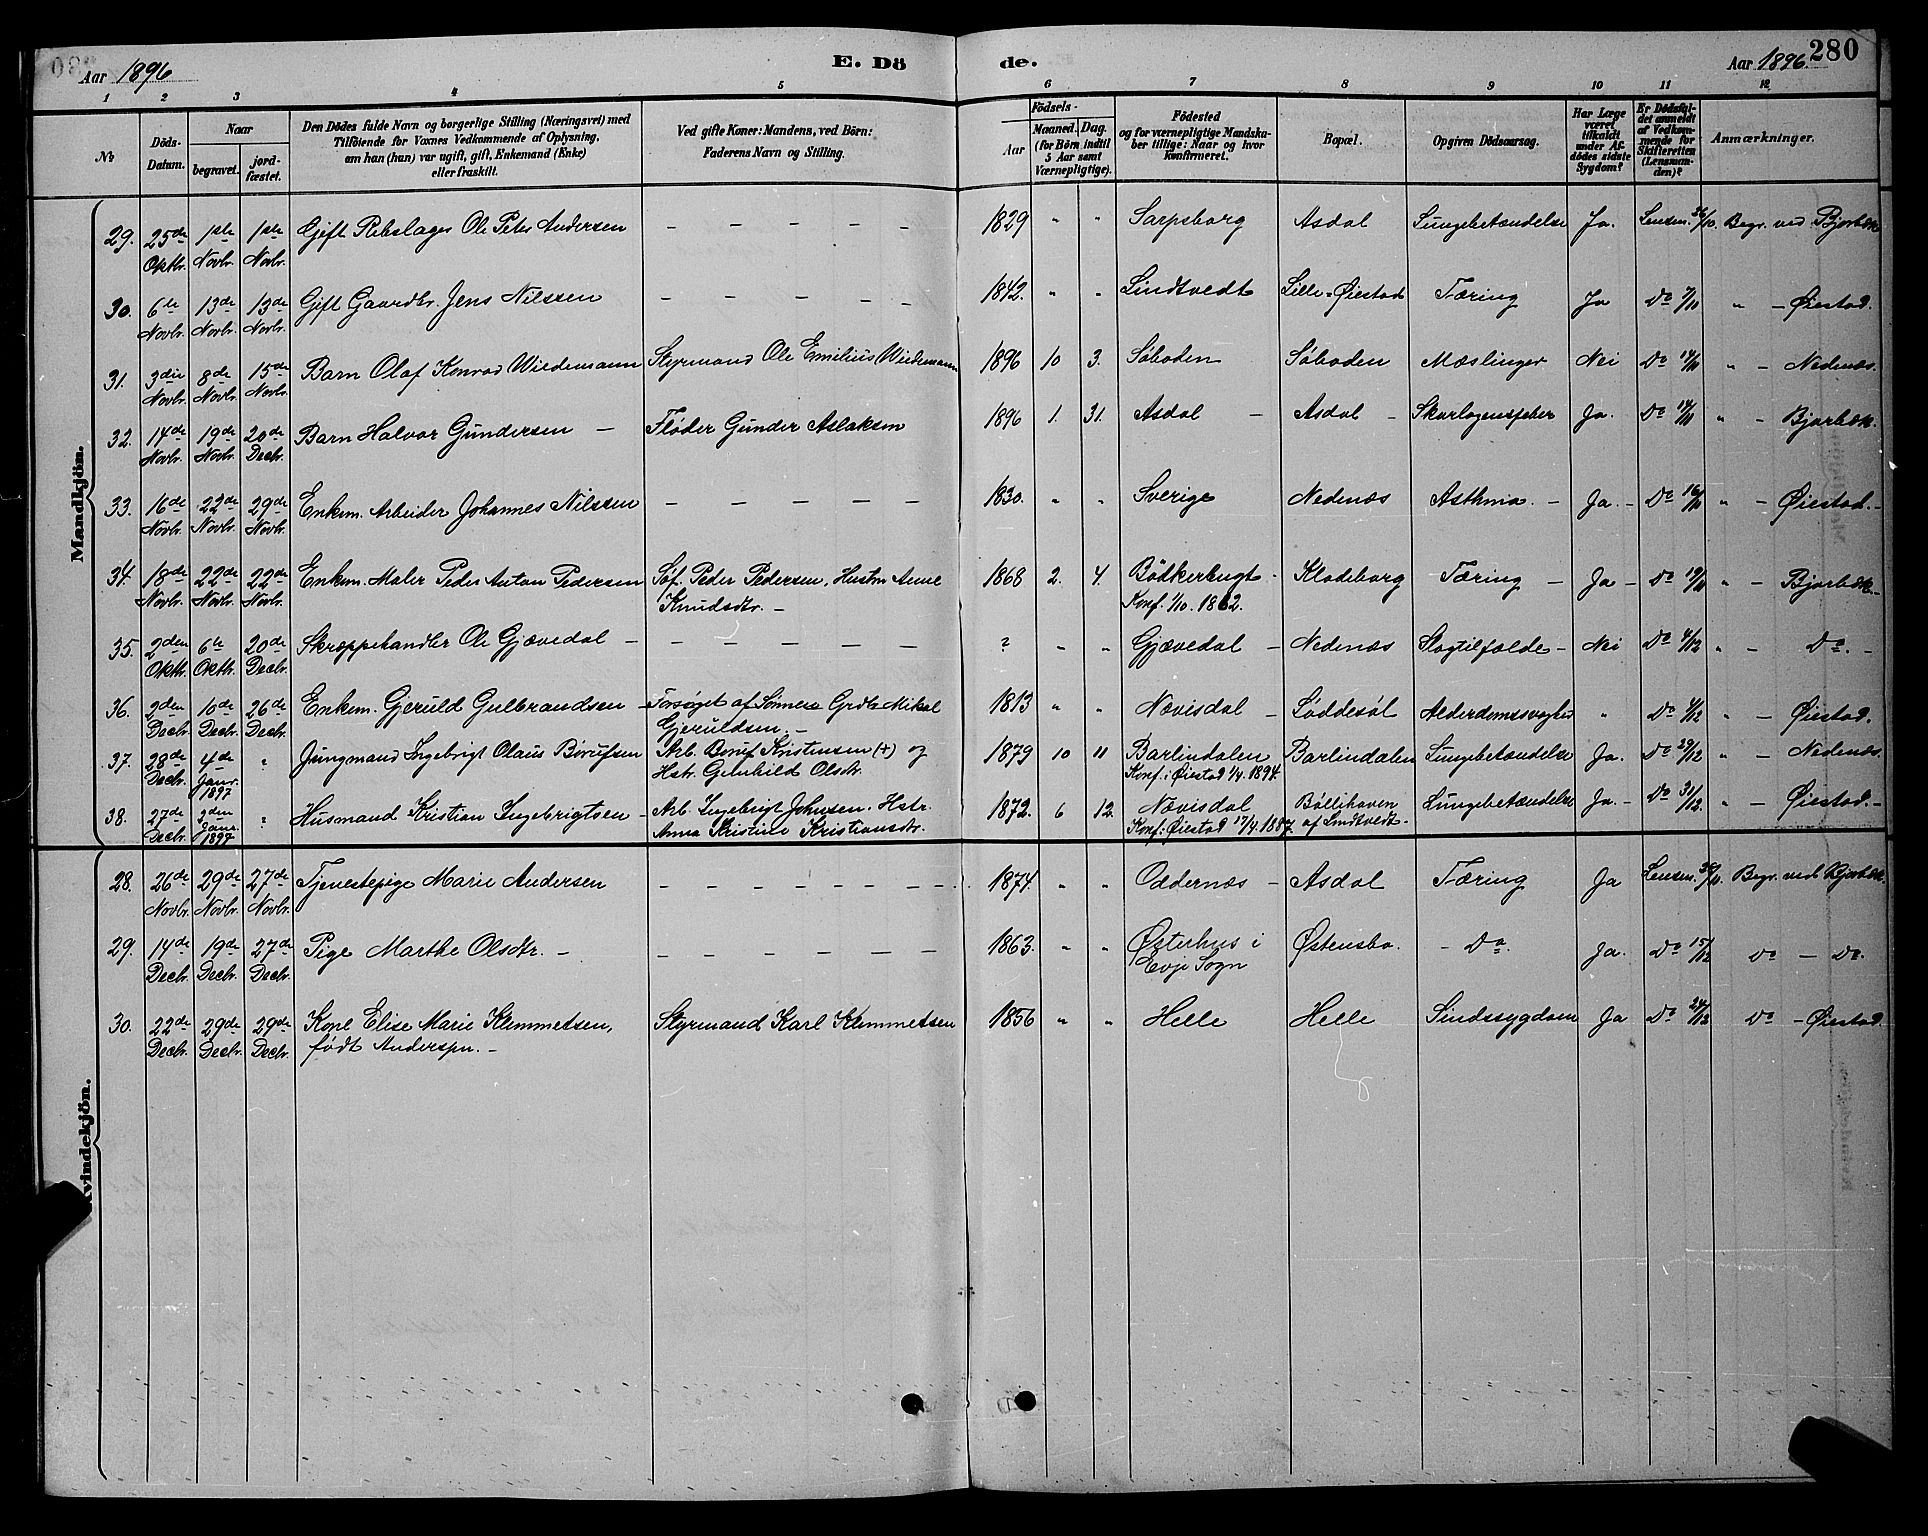 Aar 1896
E. Dö
de.
Aar 1896.
280
1 2 3 4 5 6 7 8 9 10 11 12
No
Döds-Datum.
Naar
begravet.
jordfæstet.
Den Dödes fulde Navn og borgerlige Stilling (Næringsvei) med
Tilföiende for Voxnes Vedkommende af Oplysning,
om han (hun) var ugift, gift, Enkemand (Enke)
eller fraskilt.
Ved gifte Koner: Mandens, ved Börn:
Faderens Navn og Stilling.
Födsels-
Aar
Maaned. Dag.
(for Börn indtil
5 Aar samt
Værnepligtige).
Födested
og for værnepligtige Mandska-
ber tillige: Naar og hvor
konfirmeret.
Bopæl.
Opgiven Dödsaarsag.
Har Læge
været
tilkaldt
under Af-
dödes sidste
Sygdom?
Er Dödsfal-
det anmeldt
af Vedkom-
mende for
Skifteretten
(Lensman-
den)?
Anmærkninger.
Mandkjön.
29. 25de Oktbr. 1ste Novbr. 1ste Novbr. Gift Rebslager Ole Peter Andersen – – – – – 1829 " " Sarpsborg Asdal Lungebetændelse Ja. Lensm. 26/10. Begr. ved Bjorbæk
30. 6te Novbr. 13de Novbr. 13de Novbr. Gift Gaardbr. Jens Nilssen – – – – – 1842. " " Lindtvedt Lille-Øiestad Tæring Ja Do 7/11 " – Øiestad.
31. 3die Novbr. 8de Novbr. 15de Novbr. Barn Olaf Konrad Wiedemann Styrmand Ole Emilius Wiedemann 1896 10 3. Søboden Søboden Mæslinger Nei Do 14/11 " – Nedenæs.
32. 14de Novbr. 19de Novbr. 20de Decbr. Barn Halvor Gundersen – Fløder Gunder Aslaksen 1896 1. 31. Asdal – Asdal – Skarlagensfeber Ja. Do 14/11 " – Bjorbæk.
33. 16de Novbr. 22de Novbr. 29de Novbr. Enkem. Arbeider Johannes Nilssen – – – – – 1830. " " Sverige Nedenæs Asthma. – Ja. – Do 16/11 " – Øiestad. –
34. 18de Novbr. 22de Novbr. 22de Novbr. Enkem. Maler Peder Anton Pedersen Søf. Peder Pedersen, Hustru Anne 1868 2. 4. Bödkerbugt – Klodeborg Tæring – Ja – Do 19/11 " – Bjorbæk. –
Knudsdtr. – Konf. 1/10. 1882.
35. 2den Oktbr. 6te Oktbr. 20de Decbr. Skreppehandler Ole Gjævedal – – – – – – ? " " Gjævedal – Nedenæs Slagtilfælde – Nei Do 4/12 " – Do. –
36. 2den Decbr. 10de Decbr. 26de Decbr. Enkem. Gjeruld Gulbrandsen – Forsørget af Sønnen Grdbr. Mikal 1813 " " Nævisdal – Løddesøl Alderdomssvaghed " Do 4/12 " – Øiestad.
Gjeruldsen. –
37. 28de Decbr. 4de Janr. 1897 " Jungmand Ingebrigt Olaus Børufsen Arb. Børuf Kristensen (+) og 1879 10 11 Barlindalen Barlindalen Lungebetændelse Ja. Do 29/12 " – Nedenæs.
Hstr. Gunhild Olsdtr. Konf. i Øiestad 1/4. 1894.
38. 27de Decbr. 3den Janr. 1897 " Husmand Kristian Ingebrigtsen – Arb. Ingebrigt Johnsen. Hstr. 1872. 6 12. Nævisdal Böllihaven Lungebetændelse Ja. – Do 31/12. " – Øiestad. –
Anna Kristine Kristiansdtr. Konf. Øiestad 17/4. 1887. af Lindtvedt –
Kvindekjön.
28. 26de Novbr. 29de Novbr. 27de Novbr. Tjenestepige Marie Andersen – – – – – – – – 1874. " " Oddernæs – Asdal Tæring Ja Lensm. 28/11. Begr. ved Bjorbæk.
29. 14de Decbr. 19de Decbr. 27de Decbr. Pige Marthe Olsdtr. – – – – – – – 1863. " " Østerhus i Østensbo. – Do. Ja. Do 15/12 Do – Do.
Evje Sogn
30. 22de Decbr. 29de Decbr. 29de Decbr. Kone Elise Marie Klemmetsen, Styrmand Karl Klemmetsen 1856 " " Helle Helle Sindssygdom Ja Do 24/12 Do – Øiestad.
født Andersen. –